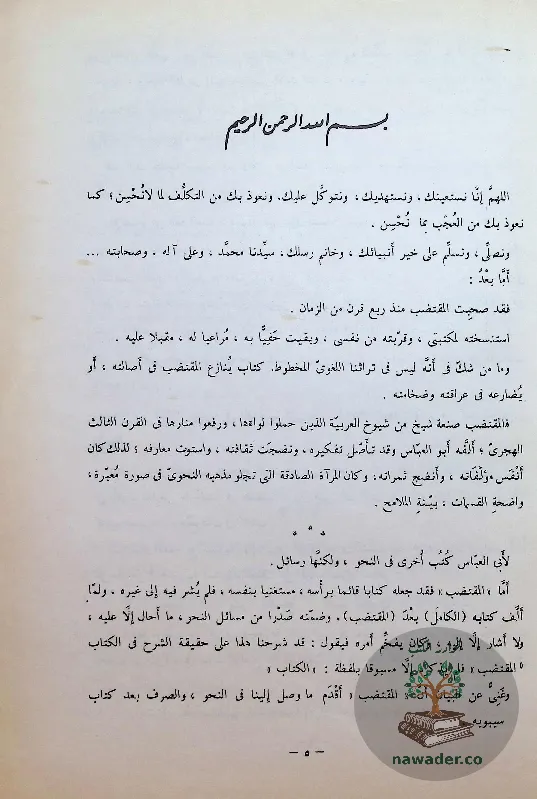 بسم الله الرحمن الرحيم
اللهمَّ إنَّا نستعينك، ونستهديك، ونتوكَّل عليك. ونعوذ بك من التكلُّف لما لانُحْسِن؛ كما
نعوذ بك من العُجْب بما نُحْسِن .
ونصلِّى ، ونسلِّم على خير أنبيائك، وخاتم رسلك، سيِّدنا محمَّد ، وعلى آله . وصحابته ...
أمَّا بعْدُ :
فقد صحِبت المقتضب منذ ربع قرن من الزمان .
استنسخته لمكتبتى ، وقرَّبته من نفسى ، وبقيت حَفِيًّا به ، مُراعيا له ، مقبلا عليه .
وما من شكٍّ فى أنَّه ليس فى تراثنا اللغوىّ المخطوط. كتاب يُنازع المقتضب فى أصالته ، أو
يُضارعه فى عراقته وضخامته .
فالمقتضب صنعة شيخ من شيوخ العربيّة الذين حملوا لواءها، ورفعوا منارها فى القرن الثالث
الهجرىّ؛ ألَّفه أبو العبّاس وقد تأصَّل تفكيره، ونضجَت ثقافته ، واستوت معارفه ؛ لذلك كان
أنْفَس مؤلَّفاته ، وأنضج ثمراته: وكان المرآة الصادقة التى تجلو مذهبه النحوىّ فى صورة مُعبّرة،
واضحةِ القسمات ؛ بيّنةِ الملامح .
* * *
لأبى العبّاس كُتُب أُخرى فى النحو ، ولكنَّها رسائل .
أمَّا «المقتضب» فقد جعله كتابا قائما برأسه ، مستغنيا بنفسه ، فلم يُشر فيه إلى غيره . ولمّا
ألَّف كتابه (الكامل) بعْدَ (المقتضب). وضمَّنه صَدْرا من مسائل النحو ، ما أحال إلَّا عليه ،
ولا أشار إلَّا إليه ، وكان يفخِّم أمره فيقول : قد شرحنا هذا على حقيقة الشرح فى الكتاب
«المقتضب» إلَّا مسبوقا بلفظة : «الكتاب»
وغَنِىٌّ عن البيان أنَّ «المقتضب» أقْدَم ما وصل إلينا فى النحو ، والصرف بعد كتاب
سيبويه
— ٥ —
nawader.co